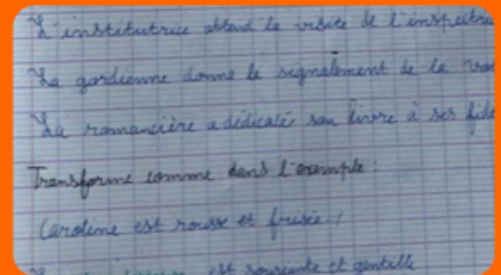 L'institutrice attend la visite de l'inspectrice
La gardienne donne le signalement de la
La romancière a dédicacé son livre à ses
Transforme comme dans l'exemple :
Caroline est rousse et frisée.
est souriante et gentille